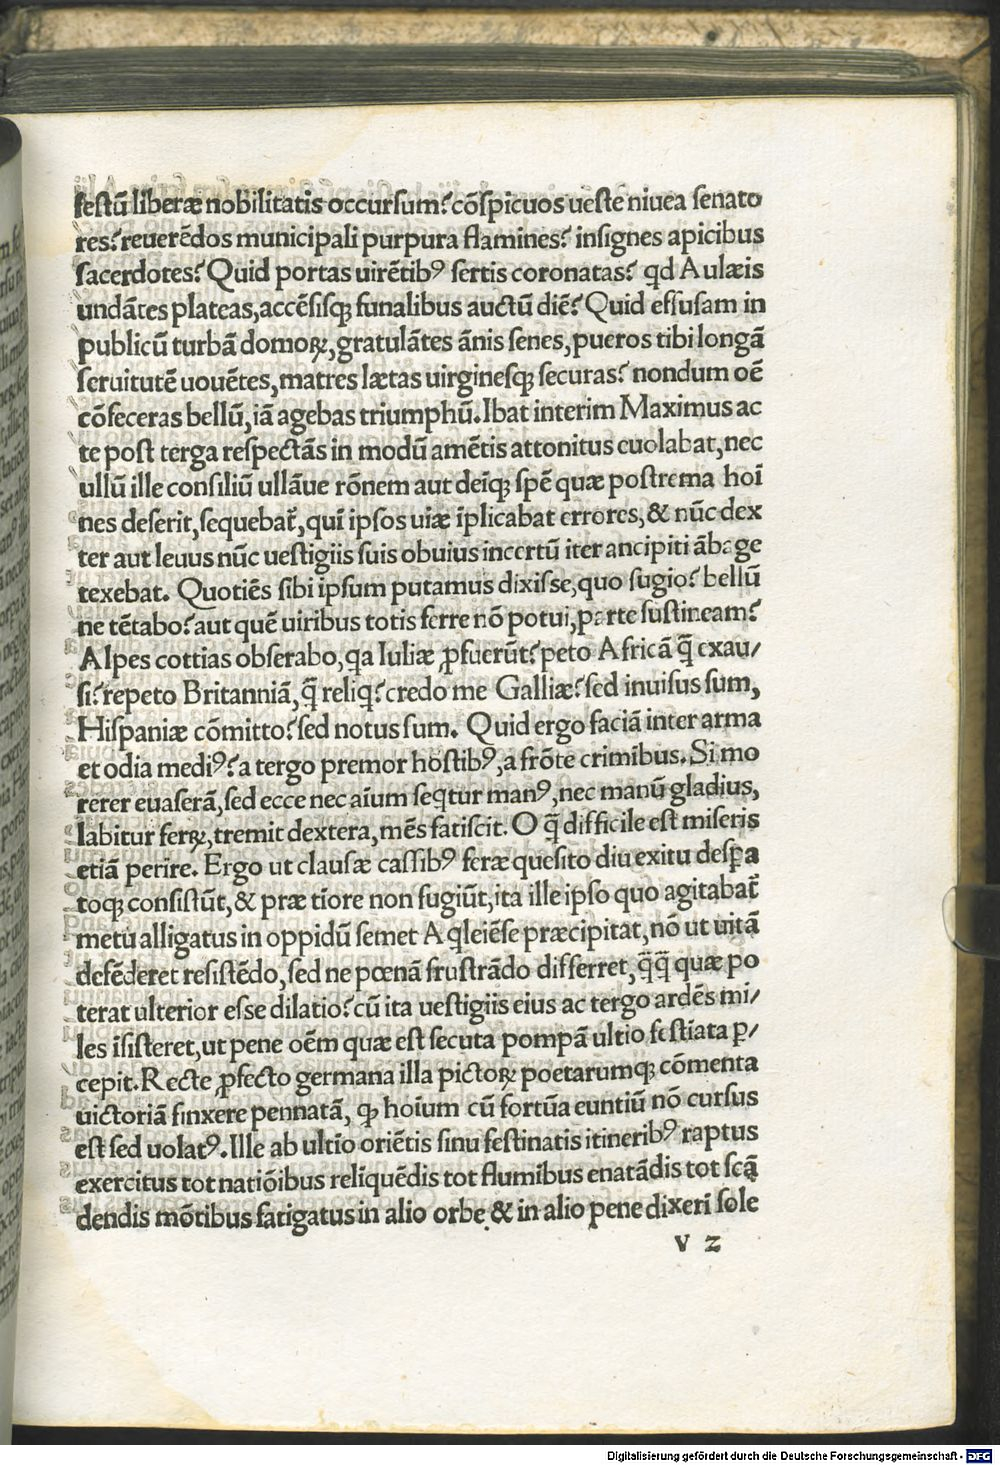 festū liberæ nobilitatis occursum? cōspicuos ueste niuea senato
res? reuerēdos municipali purpura flamines? insignes apicibus
sacerdotes? Quid portas uirētibꝰ sertis coronatas? qd Aulæis
undātes plateas, accēsisqꝫ funalibus auctū diē? Quid effusam in
publicū turbā domoꝝ, gratulātes ānis senes, pueros tibi longā
seruitutē uouētes, matres lætas uirginesqꝫ securas? nondum oē
cōfeceras bellū, iā agebas triumphū. Ibat interim Maximus ac
te post terga respectās in modū amētis attonitus euolabat, nec
ullū ille consiliū ullāue rōnem aut deīqꝫ spē quæ postrema hoī
nes deserit, sequebat̄, quī ipsos uiæ īplicabat errores, & nūc dex
ter aut leuus nūc uestigiis suis obuius incertū iter ancipiti ābage
texebat. Quotiēs sibi ipsum putamus dixisse, quo fugio? bellū
ne tētabo? aut quē uiribus totis ferre nō potui, parte sustineam?
Alpes cottias obserabo, qa Iuliæ ꝓfuerūt? peto Africā q̄ exau/
si? repeto Britanniā, q̄ reliq? credo me Galliæ? sed inuisus sum,
Hispaniæ cōmitto? sed notus sum. Quid ergo faciā inter arma
et odia mediꝰ? a tergo premor hostibꝰ, a frōte crimibus. Si mo
rerer euaserā, sed ecce nec aīum seqtur manꝰ, nec manū gladius,
labitur ferꝝ, tremit dextera, mēs fatiscit. O q̄ difficile est miseris
etiā perire. Ergo ut clausæ cassibꝰ feræ quesito diu exitu despa
toqꝫ consistūt, & præ tiore non fugiūt, ita ille ipso quo agitabat̄
metu alligatus in oppidū semet Aqleiēse præcipitat, nō ut uitā
defēderet resistēdo, sed ne pœnā frustrādo differret, q̄q̄ quæ po
terat ulterior esse dilatio? cū ita uestigiis eius ac tergo ardēs mi/
les īsisteret, ut pene oēm quæ est secuta pompā ultio festiata ꝑ/
cepit. Recte ꝓfecto germana illa pictoꝝ poetarumqꝫ cōmenta
uictoriā finxere pennatā, qꝫ hoīum cū fortūa euntiū nō cursus
est sed uolatꝰ. Ille ab ultīo oriētis sinu festinatis itineribꝰ raptus
exercitus tot natiōibus reliquēdis tot flumībus enatādis tot scā
dendis mōtibus fatigatus in alio orbe & in alio pene dixerī sole
v 2
Digitalisierung gefördert durch die Deutsche Forschungsgemeinschaft - DFG